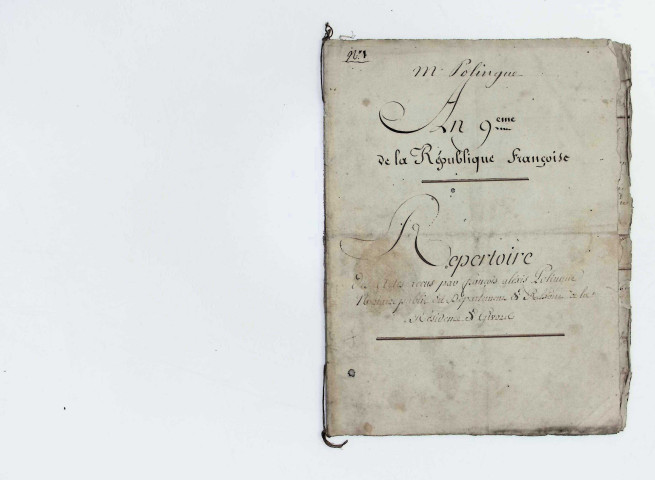 M. Polingue
An 9eme
de la République Françoise
Repertoire
Des Actes reçus par françois alexis Polingue
Notaire public du Département de la
Résidence de